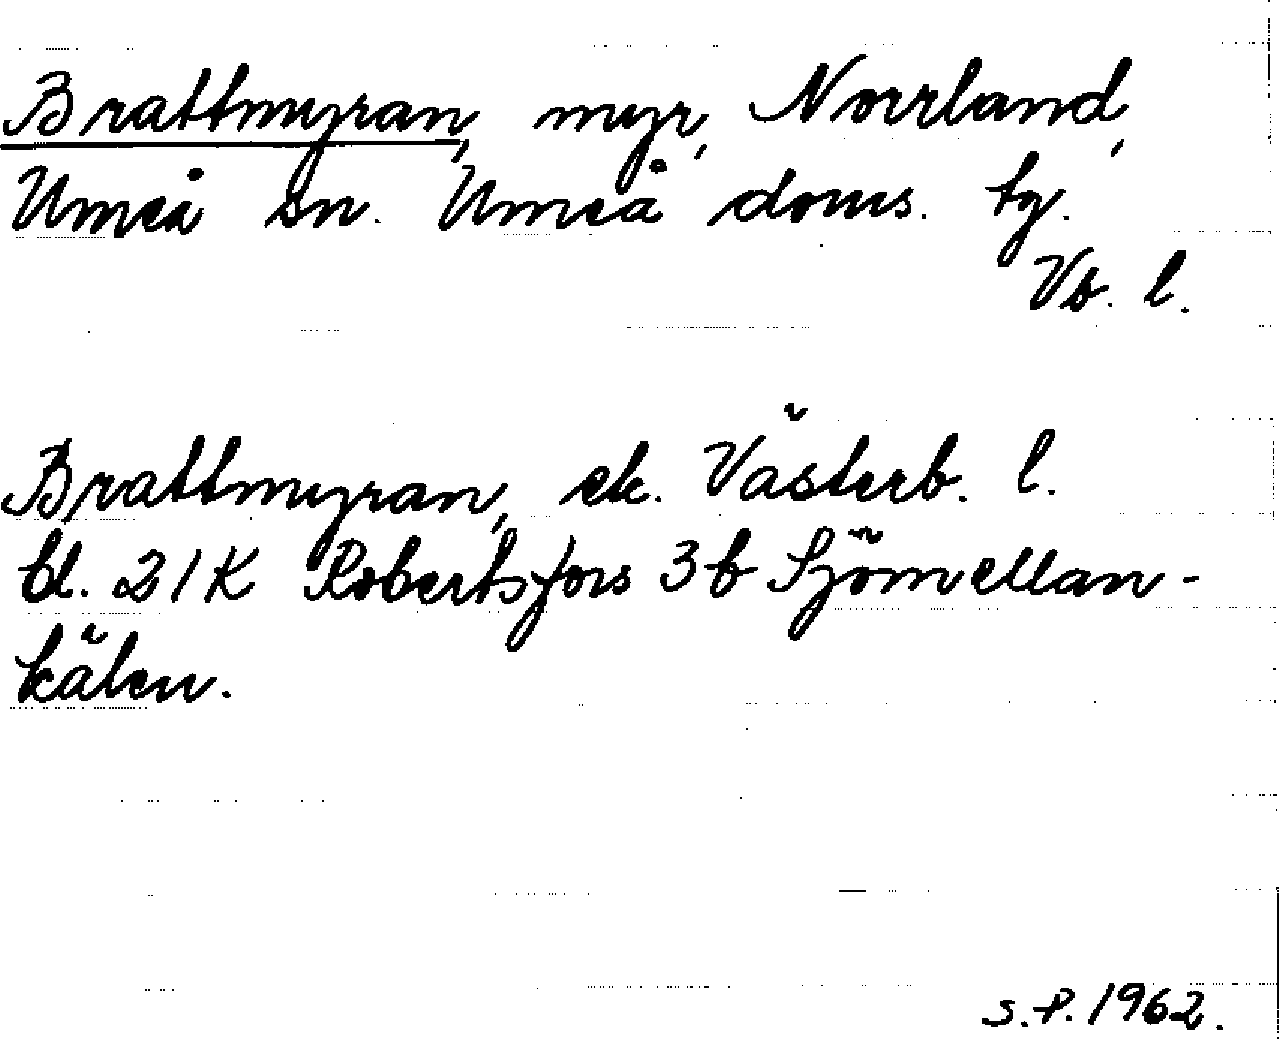 Brattmyran, myr, Norrland,
Umeå sn. Umeå doms. tg.
Vb. l.
Brattmyran, ek. Västerb. l.
bl. 21K Robertsfors 3b Sjömellan-
kälen.
S.P. 1962.